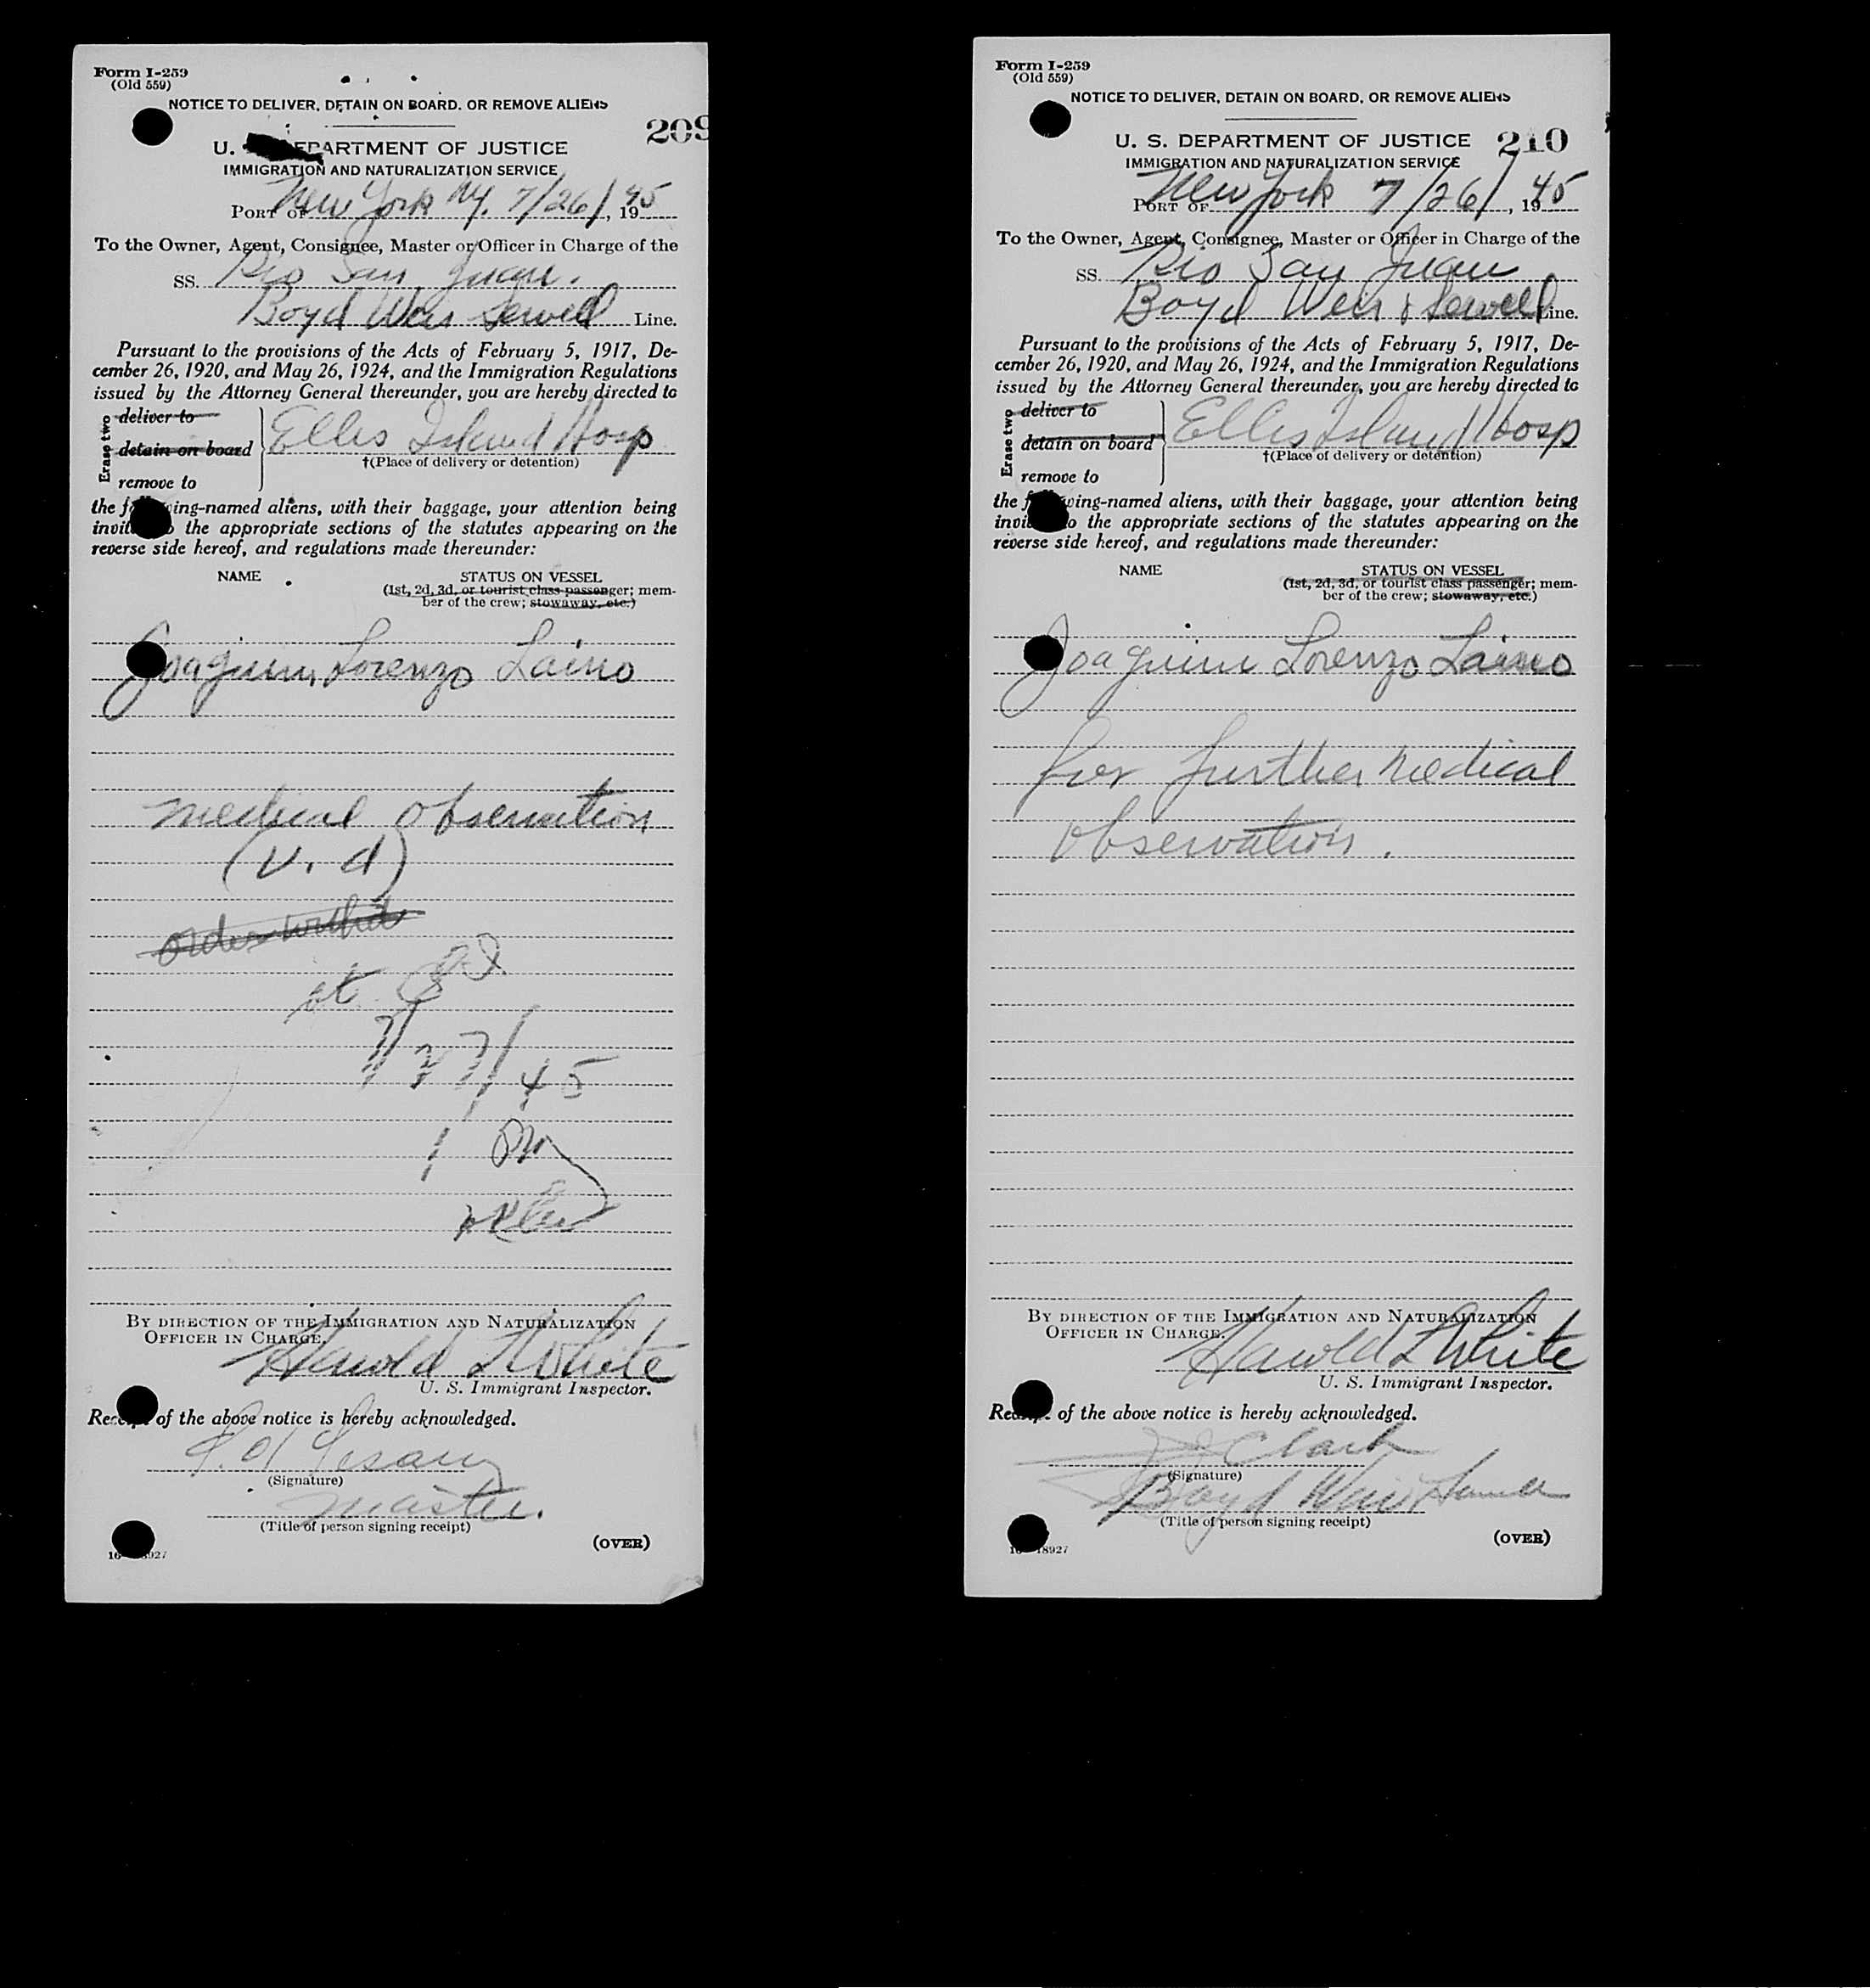 Form I-259
(Old 559)
NOTICE TO DELIVER, DETAIN ON BOARD, OR REMOVE ALIENS
209
U. DEPARTMENT OF JUSTICE
IMMIGRATION AND NATURALIZATION SERVICE
PORT OF New York N.Y. 7/26/, 1945
To the Owner, Agent, Consignee, Master or Officer in Charge of the
SS. Rio San Juan.
Boyd Weir Sewell Line.
Pursuant to the provisions of the Acts of February 5, 1917, De-
cember 26, 1920, and May 26, 1924, and the Immigration Regulations
issued by the Attorney General thereunder, you are hereby directed to
Erase two
deliver to
detain on board Ellis Island Hosp
†(Place of delivery or detention)
remove to
the following-named aliens, with their baggage, your attention being
invited to the appropriate sections of the statutes appearing on the
reverse side hereof, and regulations made thereunder:
NAME STATUS ON VESSEL
(1st, 2d, 3d, or tourist class passenger; mem-
ber of the crew; stowaway, etc.)
Joaquim Lorenzo Laino
medical observation
(v. d)
at
7/27/45
BY DIRECTION OF THE IMMIGRATION AND NATURALIZATION
OFFICER IN CHARGE.
Harold L White
U. S. Immigrant Inspector.
Receipt of the above notice is hereby acknowledged.
(Signature)
Master.
(Title of person signing receipt)
(OVER)
Form I-259
(Old 559)
NOTICE TO DELIVER, DETAIN ON BOARD, OR REMOVE ALIENS
U. S. DEPARTMENT OF JUSTICE 210
IMMIGRATION AND NATURALIZATION SERVICE
PORT OF New York 7/26/, 1945
To the Owner, Agent, Consignee, Master or Officer in Charge of the
SS. Rio San Juan
Boyd Weir & Sewell Line.
Pursuant to the provisions of the Acts of February 5, 1917, De-
cember 26, 1920, and May 26, 1924, and the Immigration Regulations
issued by the Attorney General thereunder, you are hereby directed to
Erase two
deliver to
detain on board Ellis Island Hosp
†(Place of delivery or detention)
remove to
the following-named aliens, with their baggage, your attention being
invited to the appropriate sections of the statutes appearing on the
reverse side hereof, and regulations made thereunder:
NAME STATUS ON VESSEL
(1st, 2d, 3d, or tourist class passenger; mem-
ber of the crew; stowaway, etc.)
Joaquim Lorenzo Laino
for further medical
observation.
BY DIRECTION OF THE IMMIGRATION AND NATURALIZATION
OFFICER IN CHARGE.
Harold L White
U. S. Immigrant Inspector.
Receipt of the above notice is hereby acknowledged.
Clark
(Signature)
Boyd Weir Sewell
(Title of person signing receipt)
(OVER)